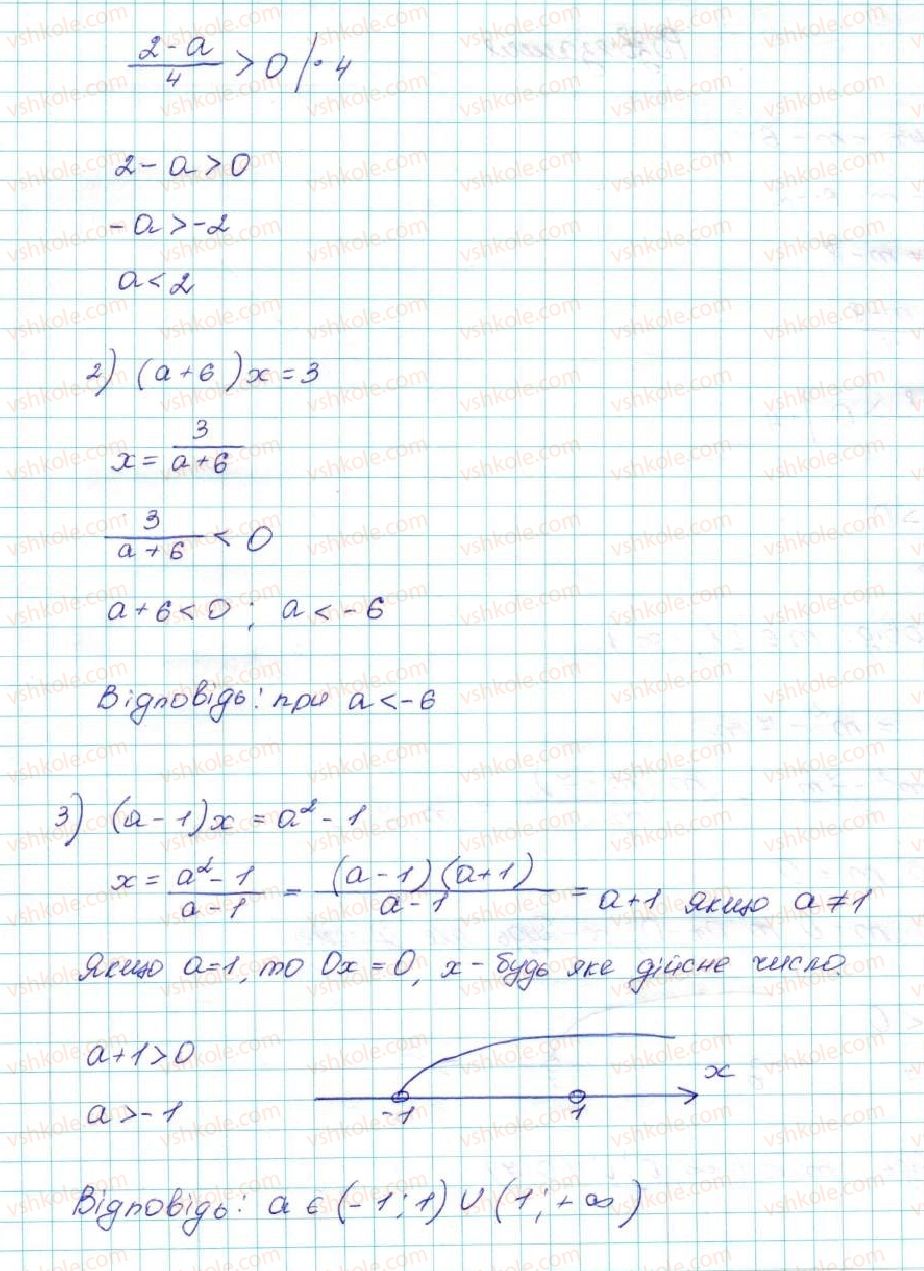 2-a/4 > 0 |· 4
2 - a > 0
- a > -2
a < 2
2) (a+6)x = 3
x = 3/a+6
3/a+6 < 0
a+6 < 0 ; a < -6
Відповідь: при a < -6
3) (a-1)x = a² - 1
x = a²-1/a-1 = (a-1)(a+1)/a-1 = a+1 якщо a ≠ 1
Якщо a=1, то 0x = 0, x - будь яке дійсне число
a+1 > 0
x
a > -1
-1 1
Відповідь: a є (-1; 1) U (1; +∞)
vshkole.com